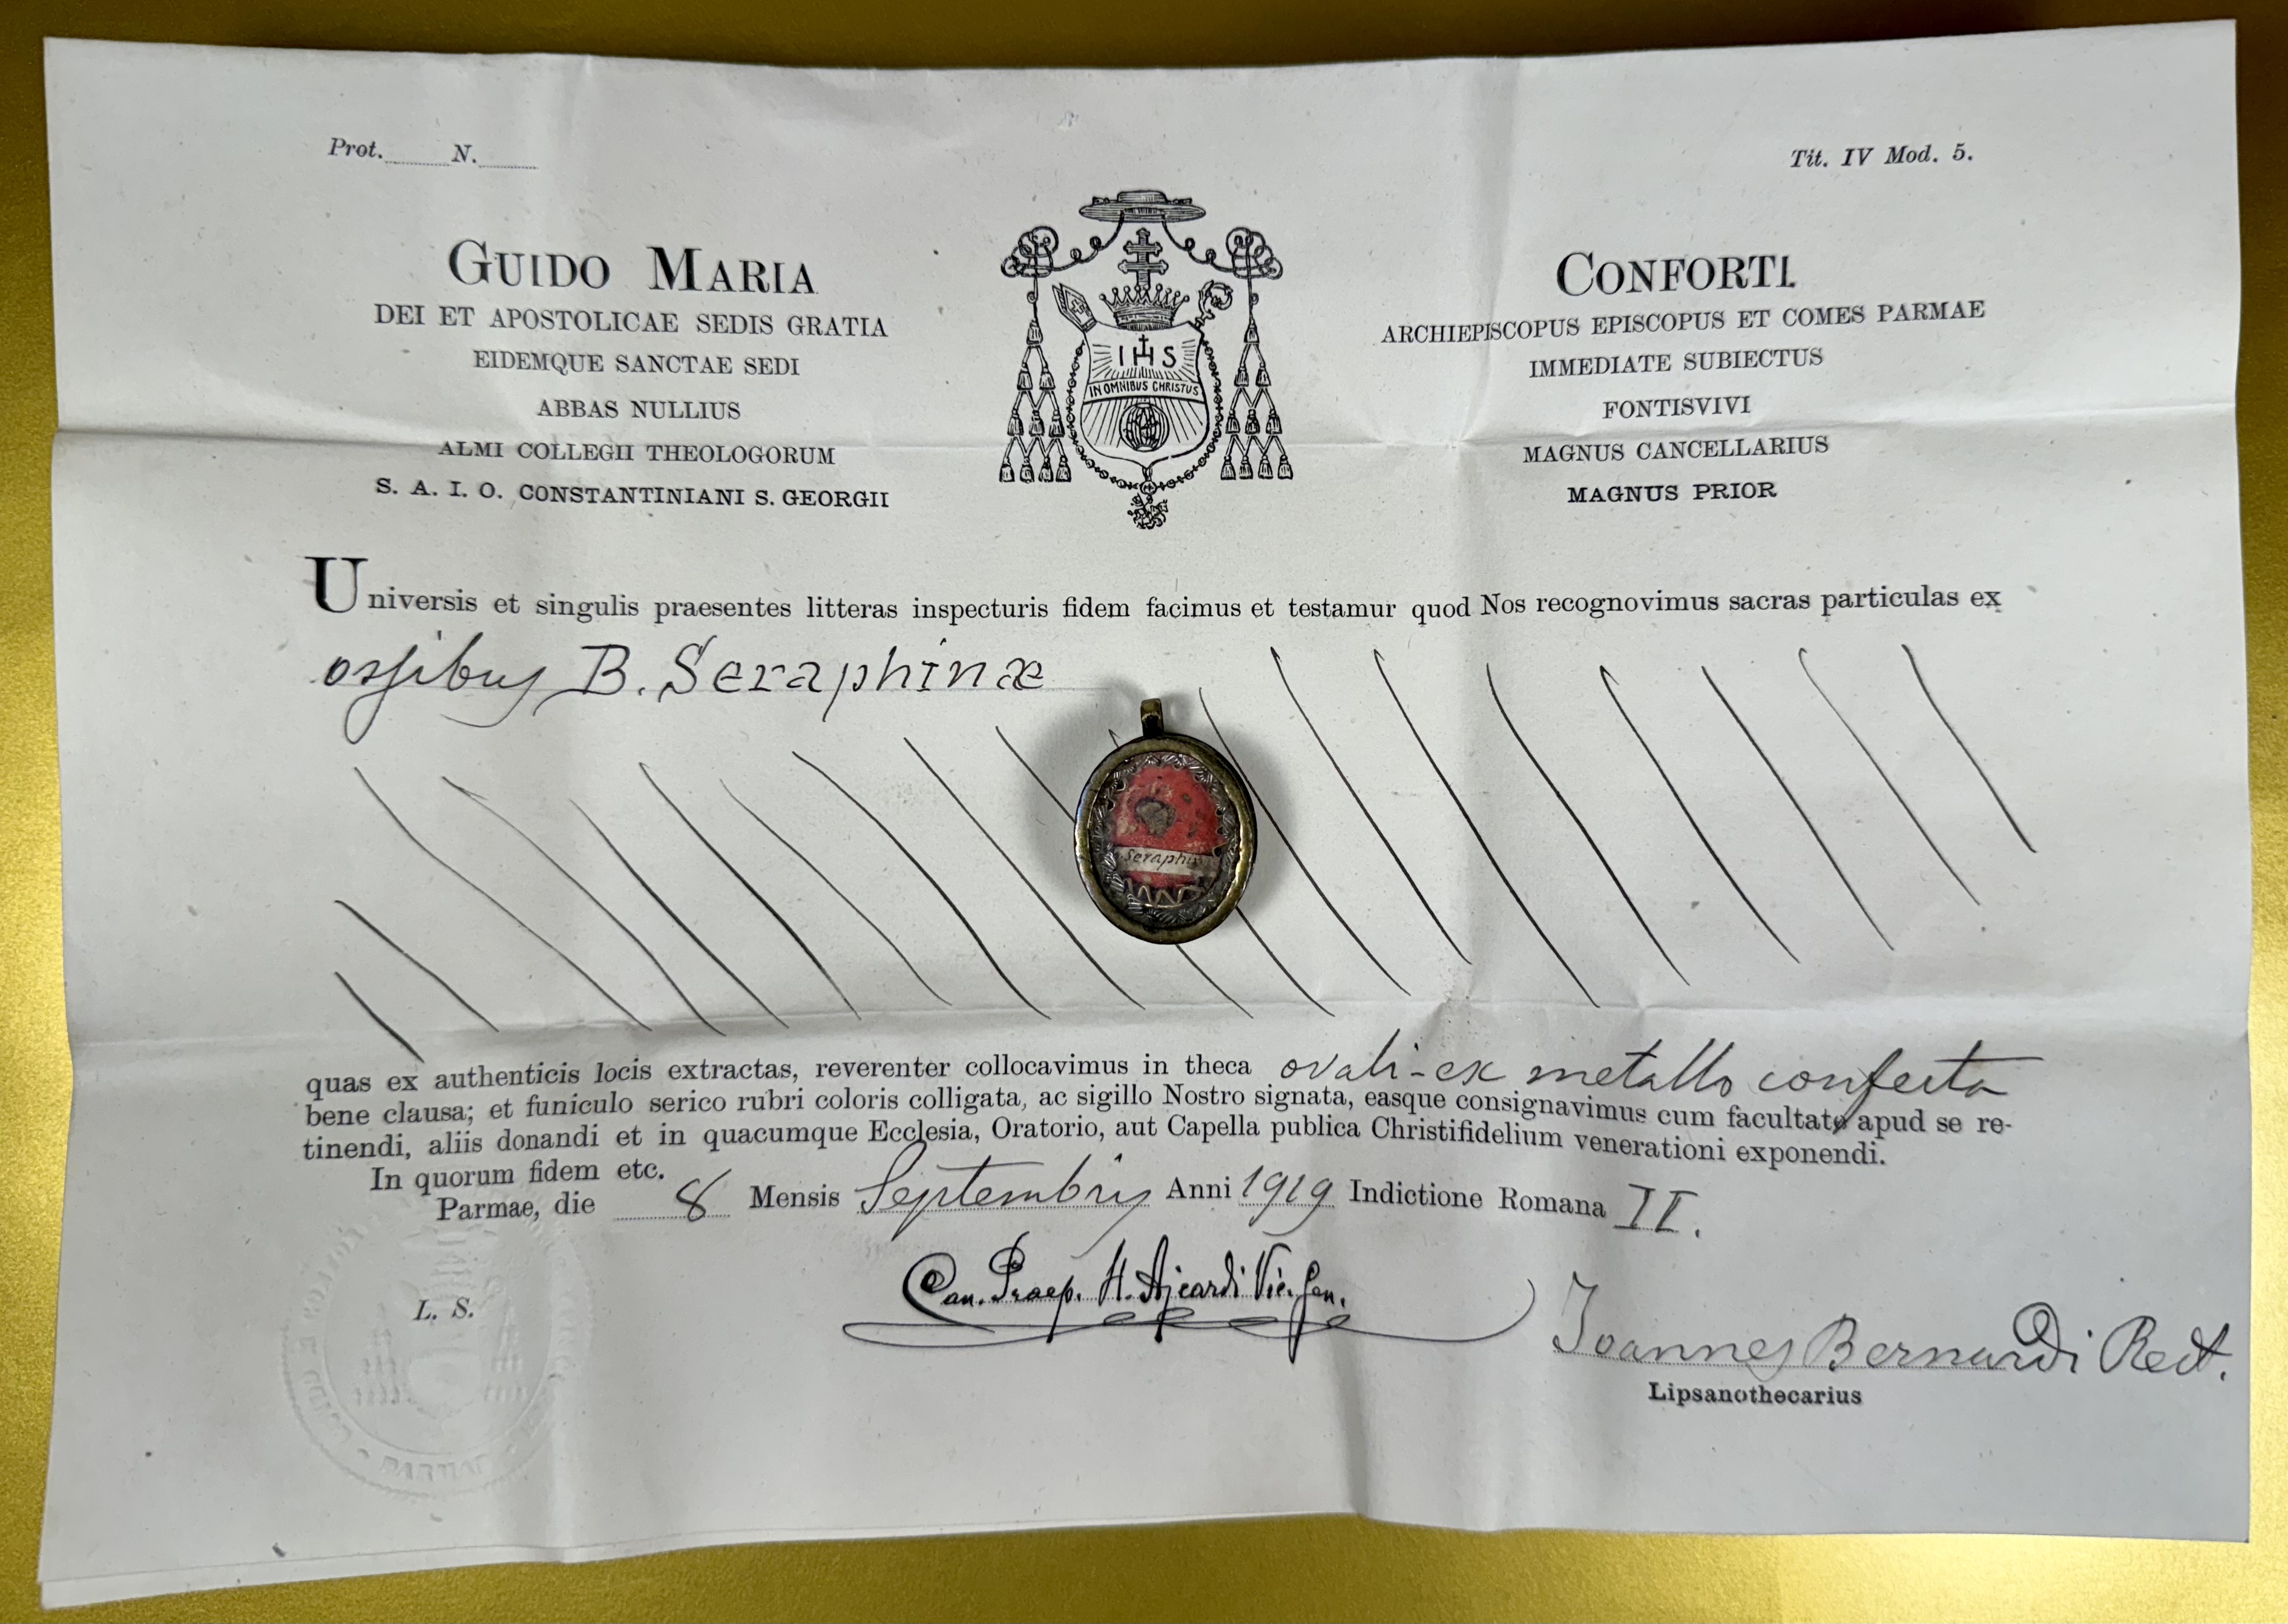 Prot. N.
Tit. IV Mod. 5.
GUIDO MARIA CONFORTI
DEI ET APOSTOLICAE SEDIS GRATIA ARCHIEPISCOPUS EPISCOPUS ET COMES PARMAE
EIDEMQUE SANCTAE SEDI IMMEDIATE SUBIECTUS
ABBAS NULLIUS FONTISVIVI
ALMI COLLEGII THEOLOGORUM MAGNUS CANCELLARIUS
S. A. I. O. CONSTANTINIANI S. GEORGII MAGNUS PRIOR
IHS
IN OMNIBUS CHRISTUS
Universis et singulis praesentes litteras inspecturis fidem facimus et testamur quod Nos recognovimus sacras particulas ex
ossibus B. Seraphinæ
Seraphi
quas ex authenticis locis extractas, reverenter collocavimus in theca ovali-ex metallo confecta
bene clausa; et funiculo serico rubri coloris colligata, ac sigillo Nostro signata, easque consignavimus cum facultate apud se re-
tinendi, aliis donandi et in quacumque Ecclesia, Oratorio, aut Capella publica Christifidelium venerationi exponendi.
In quorum fidem etc.
Parmae, die 8 Mensis Septembris Anni 1919 Indictione Romana II.
L. S.
Can. Praep. H. Ajcardi Vic. Gen.
Joannes Bernardi Rect.
Lipsanothecarius
PARMAE